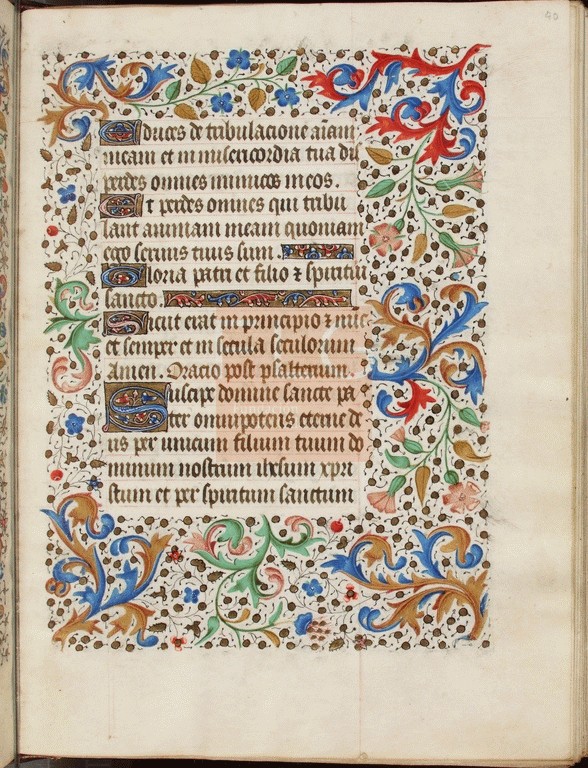 40
Educes de tribulacione aīam
meam et in misericordia tua dis
perdes omnes inimicos meos.
Et perdes omnes qui tribu
lant animam meam quoniam
ego seruus tuus sum.
Gloria patri et filio ⁊ spiritui
sancto.
Sicut erat in principio ⁊ nūc
et semper et in secula seculorum
Amen. Oracio post psalterium.
Suscipe domine sancte pa
ter omnipotens eterne de
us per unicum filium tuum do
minum nostrum ihesum xpri
stum et per spiritum sanctum